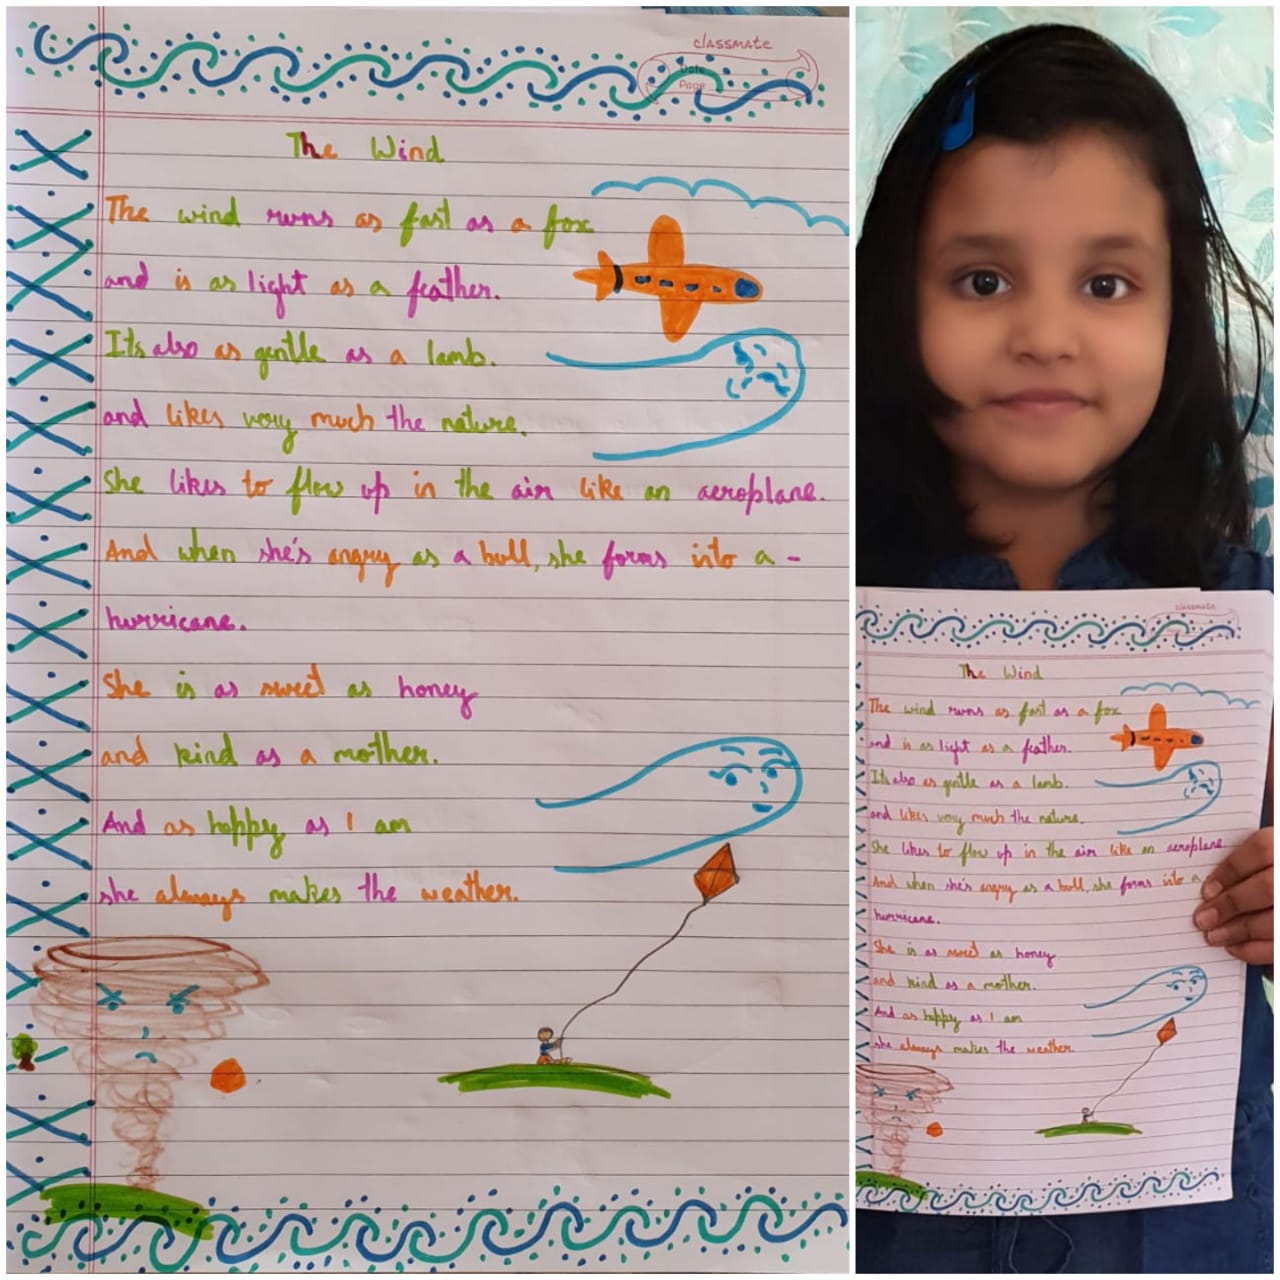 classmate
Date
Page
The Wind
The wind runs as fast as a fox
and is as light as a feather.
Its also as gentle as a lamb.
and likes very much the nature.
She likes to flow up in the air like an aeroplane.
And when she's angry as a bull, she forms into a -
hurricane.
She is as sweet as honey
and kind as a mother.
And as happy as I am
she always makes the weather.
classmate
The Wind
The wind runs as fast as a fox
and is as light as a feather.
Its also as gentle as a lamb.
and likes very much the nature.
She likes to flow up in the air like an aeroplane
And when she's angry as a bull, she forms into a
hurricane.
She is as sweet as honey
and kind as a mother.
And as happy as I am
she always makes the weather.